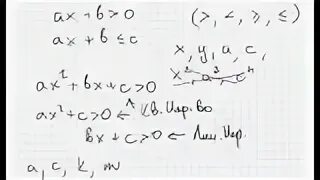 ax + b > 0 (>, <, ⩾, ≤)
ax + b ≤ c
x, y, a, c,
ax² + bx + c > 0
ax² + c > 0 ← Кв. Нер-во
bx + c > 0 ← Лин. Нер.
a, c, k, m